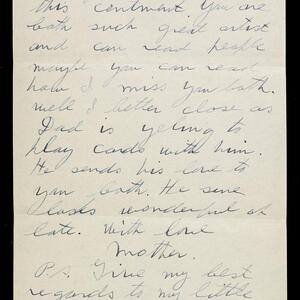 this centment you are
both such great artist
and can read people
maybe you can read
how I miss you both.
well I better close as
Dad is yeling to
play cards with him.
He sends his love to
you both. He sure
looks wonderful of
late. With love
Mother.
P.S. Give my best
regards to my little